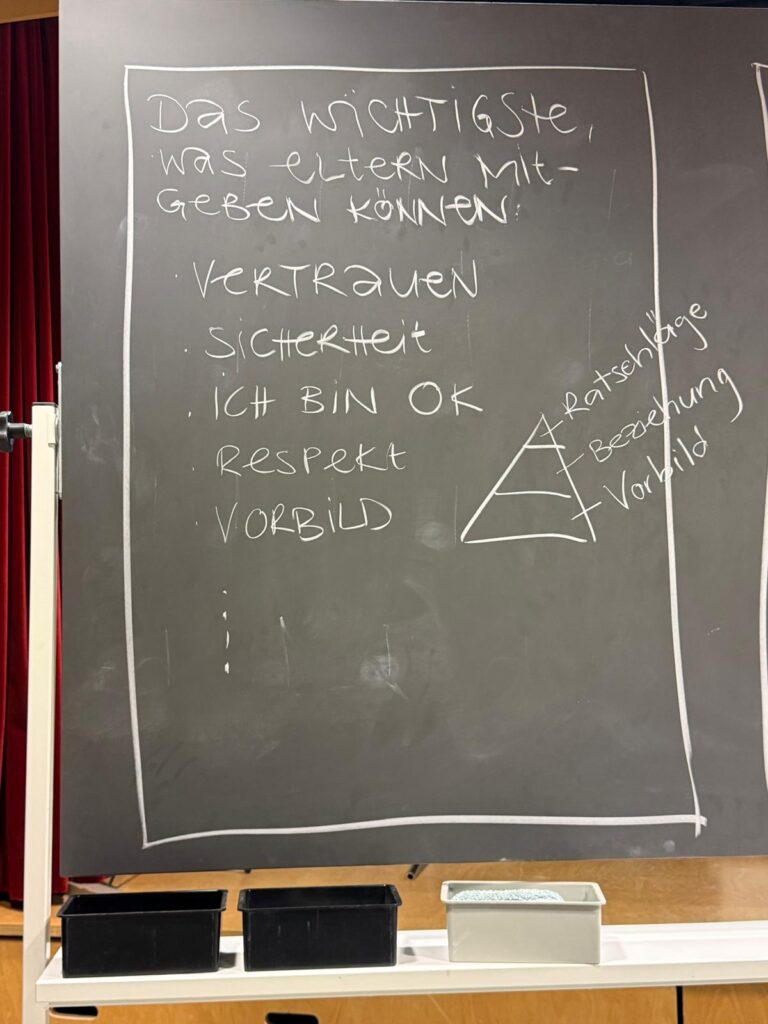 Das Wichtigste,
was Eltern mit-
geben können:
· Vertrauen
· Sicherheit
· Ich bin OK
· Respekt
· Vorbild
Ratschläge
Beziehung
Vorbild